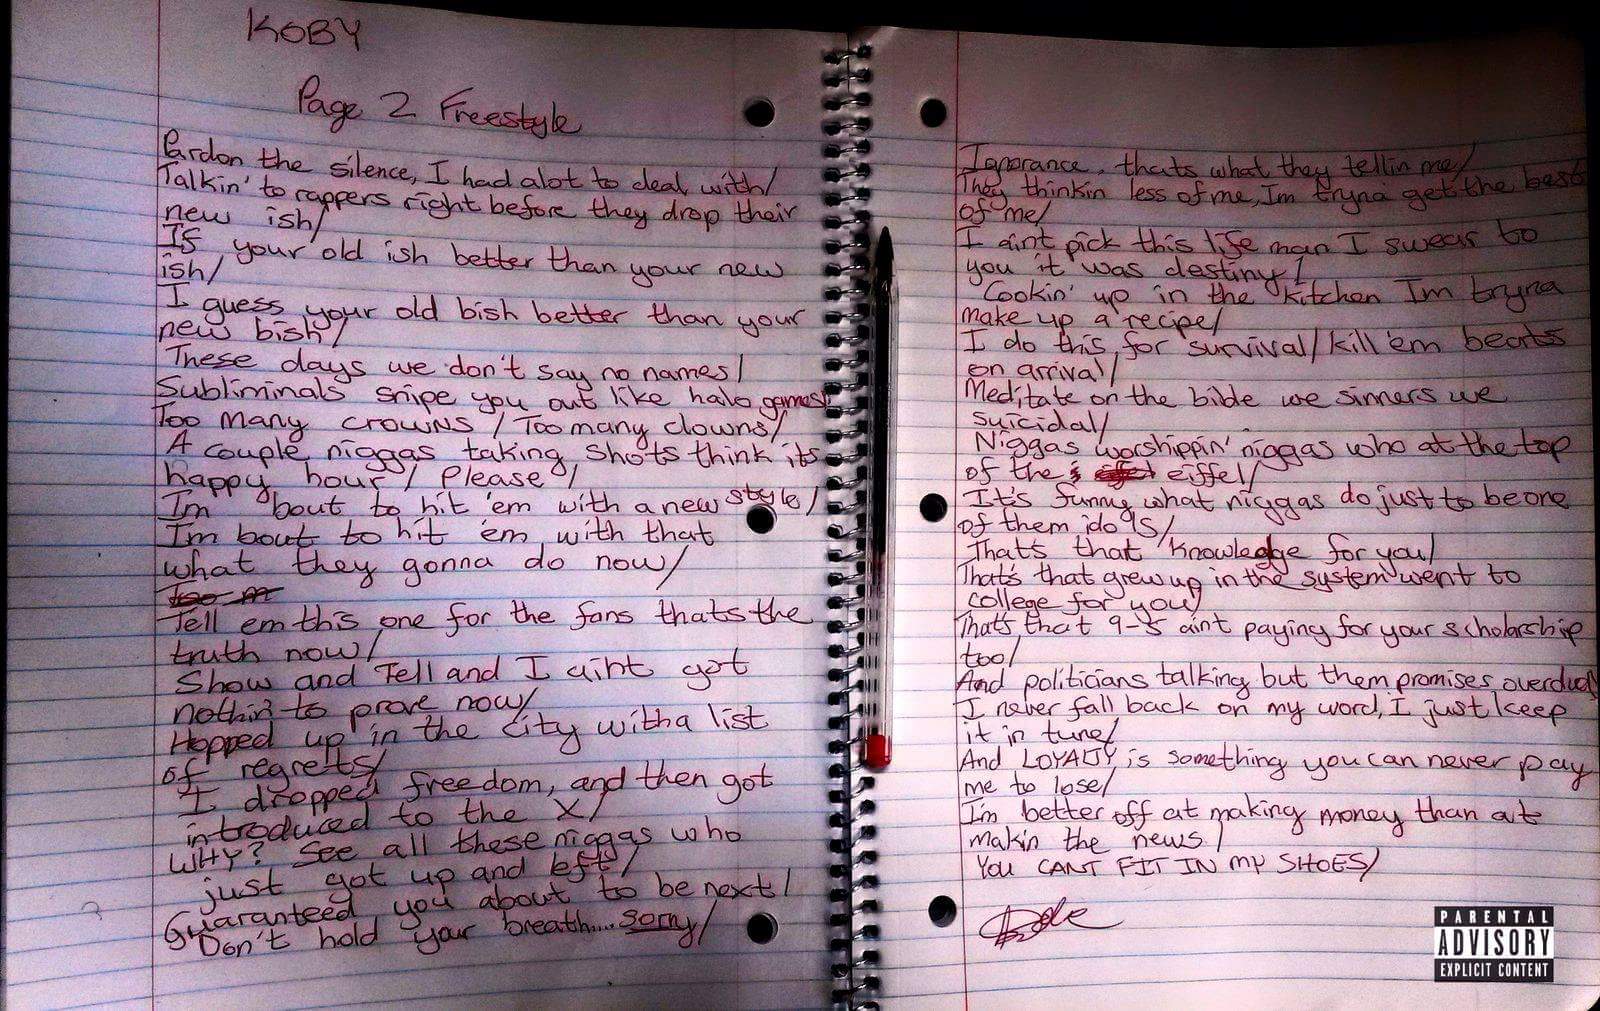 KOBY
Page 2 Freestyle
Pardon the silence, I had alot to deal with/
Talkin' to rappers right before they drop their
new ish/
If your old ish better than your new
ish/
I guess your old bish better than your
new bish/
These days we don't say no names/
Subliminals snipe you out like halo games/
Too many crowns / Too many clowns/
A couple niggas taking shots think its
happy hour / Please /
Im 'bout to hit 'em with a new style/
Im bout to hit 'em with that
what they gonna do now/
too m
Tell em this one for the fans thats the
truth now/
Show and Tell and I aint got
nothin to prove now/
Hopped up in the city with a list
of regrets/
I dropped freedom, and then got
introduced to the X/
WHY? See all these niggas who
just got up and left/
Guaranteed you about to be next/
Don't hold your breath.... sorry/
Ignorance, thats what they tellin me/
They thinkin less of me, Im tryna get the best
of me/
I aint pick this life man I swear to
you it was destiny/
Cookin' up in the kitchen Im tryna
make up a recipe/
I do this for survival/kill 'em beats
on arrival/
Meditate on the bible we sinners we
suicidal/
Niggas worshippin' niggas who at the top
of the eiffel/
It's funny what niggas do just to be one
of them idols/
That's that knowledge for you/
That's that grew up in the system went to
college for you/
That's that 9-5 aint paying for your scholarship
too/
And politicians talking but them promises overdue/
I never fall back on my word, I just keep
it in tune/
And LOYALTY is something you can never pay
me to lose/
I'm better off at making money than at
makin the news/
YOU CANT FIT IN MY SHOES/
PARENTAL
ADVISORY
EXPLICIT CONTENT